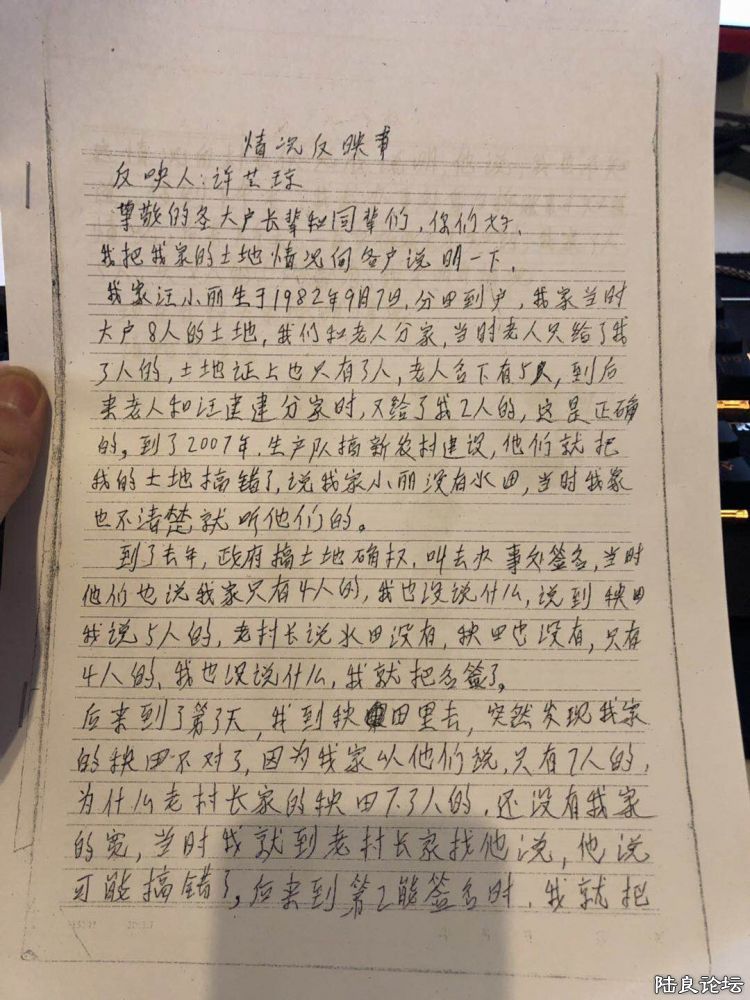 情况反映书
反映人:许芝琼
尊敬的各大户长辈和同辈们,你们好,
我把我家的土地情况向各户说明一下,
我家汪小丽生于1982年9月7日,分田到户,我家当时
大户8人的土地,我们和老人分家,当时老人只给了我
3人的,土地证上也只有3人,老人名下有5人,到后
来老人和汪建建分家时,又给了我2人的,这是正确
的。到了2007年,生产队搞新农村建设,他们就把
我的土地搞错了,说我家小丽没有水田,当时我家
也不清楚就听他们的。
到了去年,政府搞土地确权,叫去办事处签名,当时
他们也说我家只有4人的,我也没说什么,说到秧田
我说5人的,老村长说水田没有,秧田也没有,只有
4人的,我也没说什么,我就把名签了。
后来到了第3天,我到秧田里去,突然发现我家
的秧田不对了,因为我家以他们说,只有2人的,
为什么老村长家的秧田 3人的,还没有我家
的宽,当时我就到老村长家找他说,他说
可能搞错了。后来到第2 签名时,我就把
陆良论坛